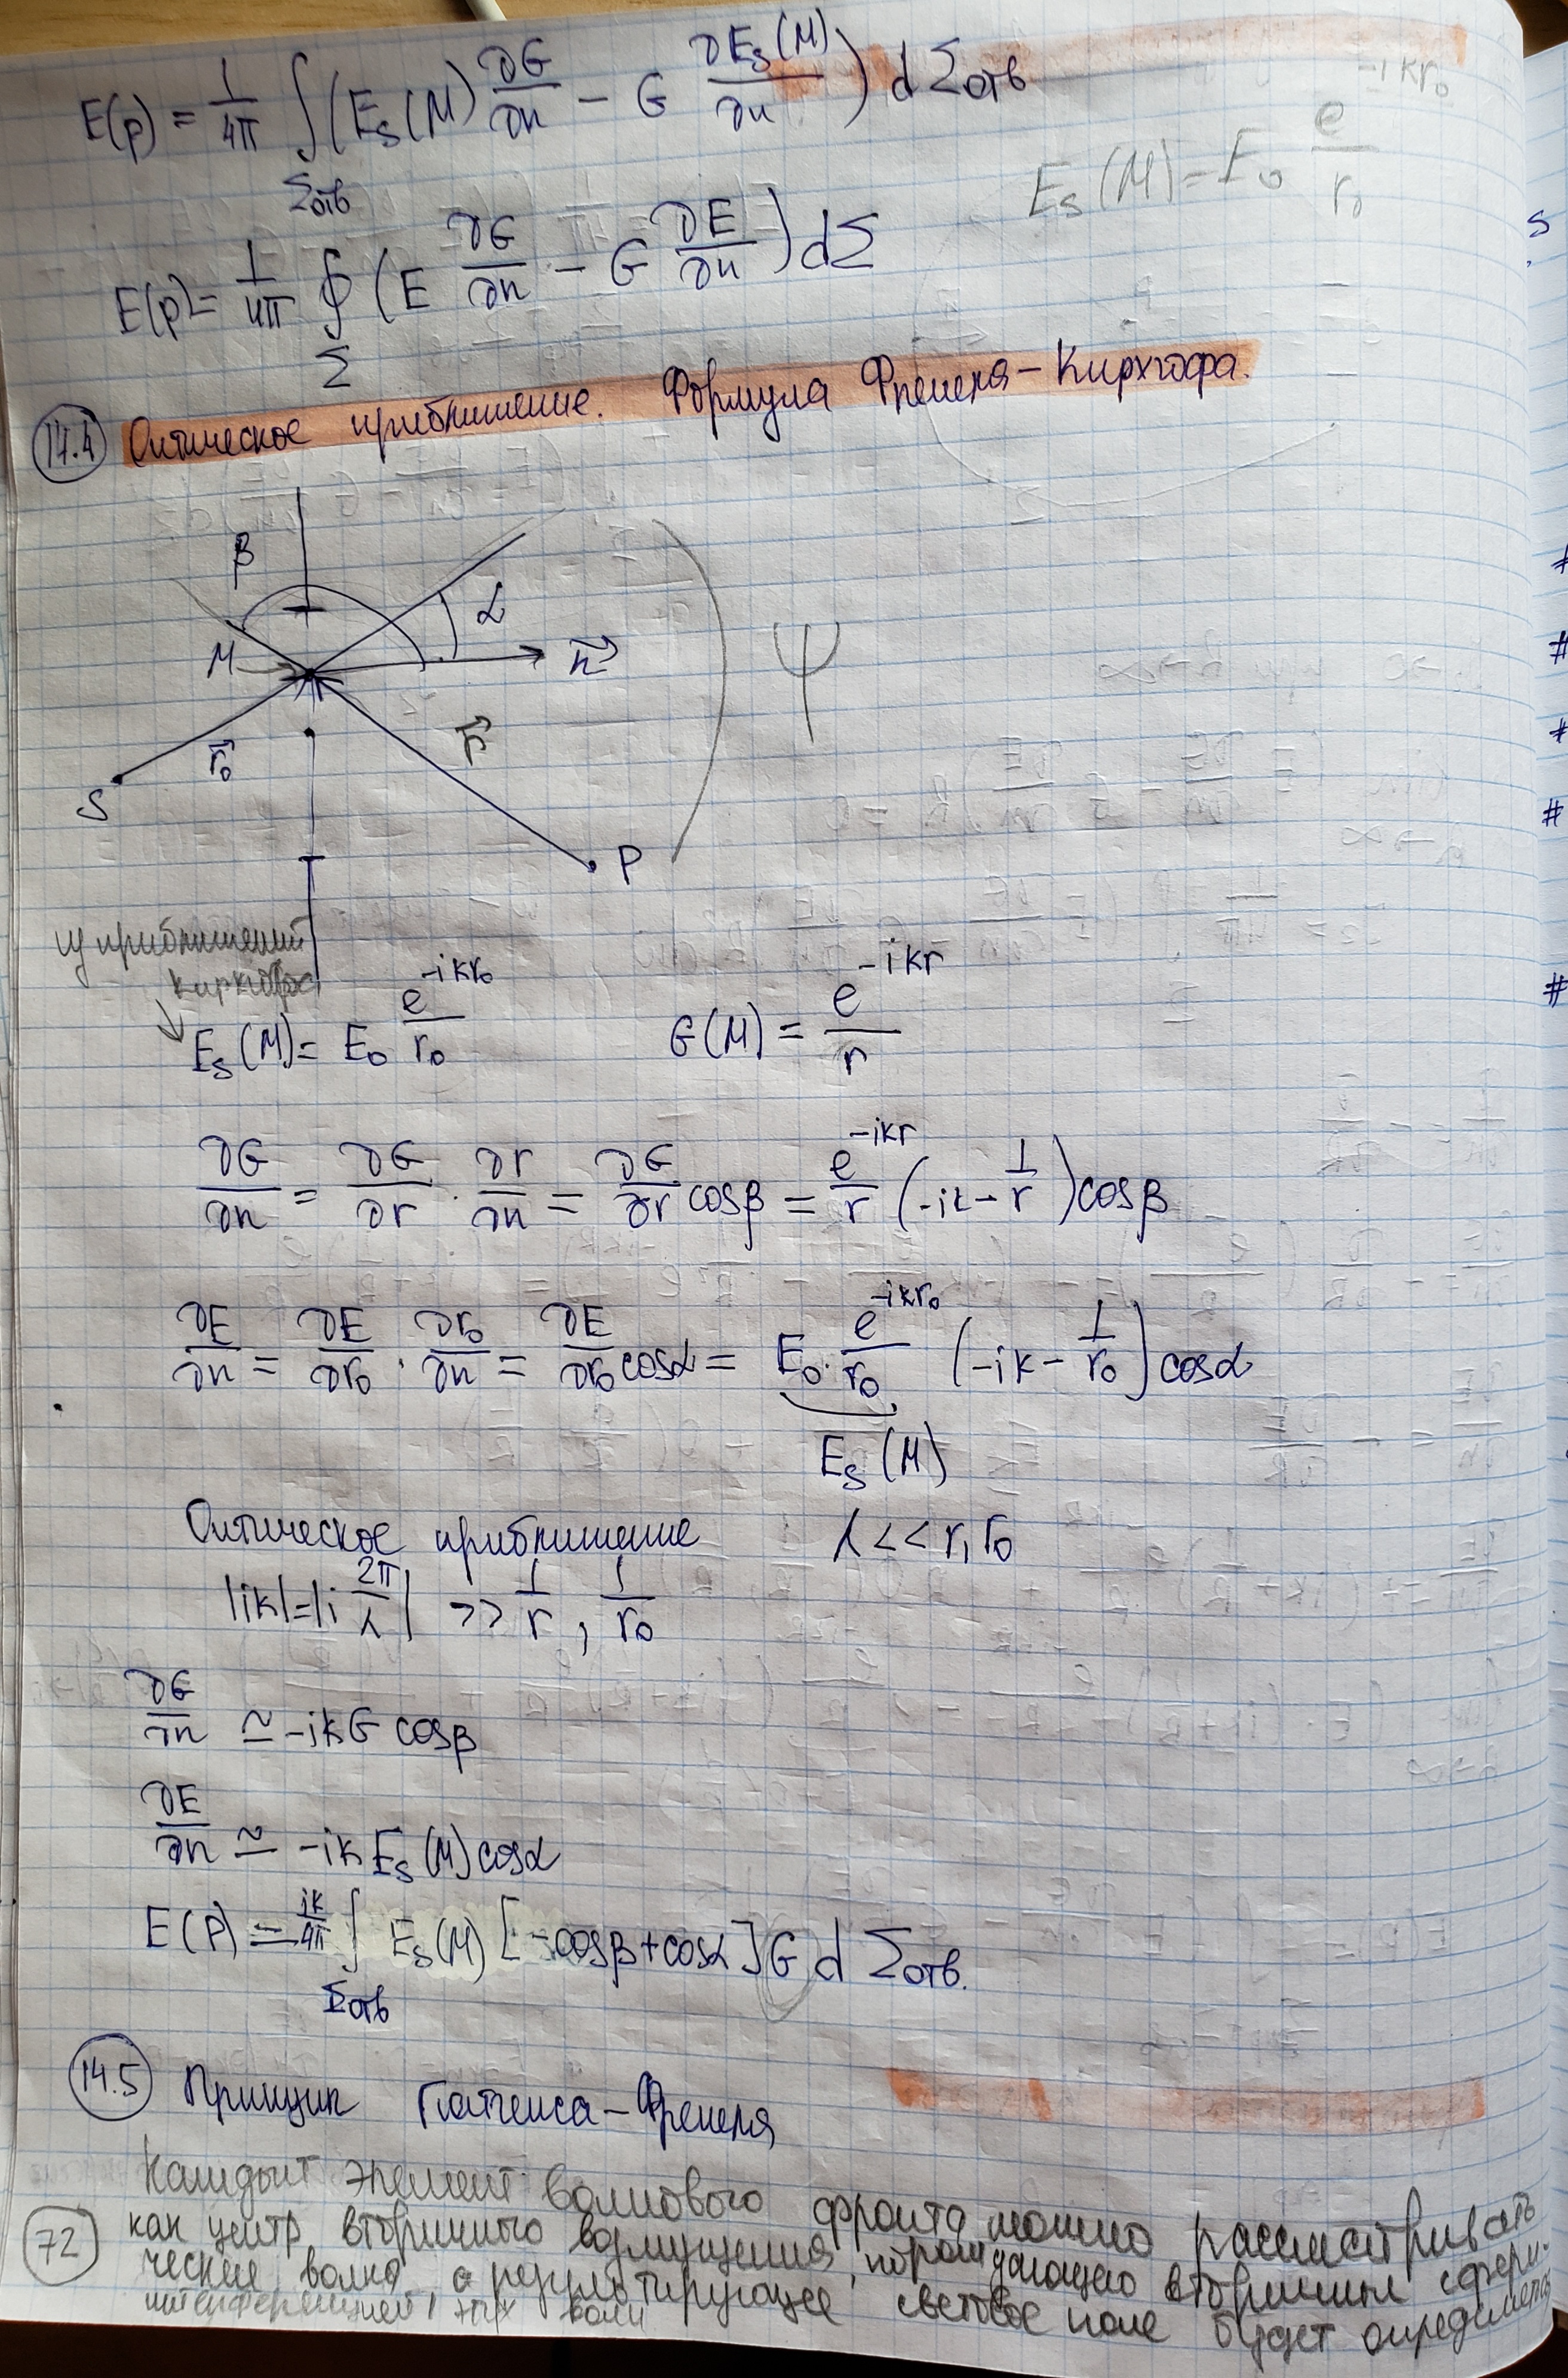 E(p) = 1/4π ∫_Σотв (E_s(M) ∂G/∂n − G ∂E_s(M)/∂n) dΣотв
E_s(M) = E₀ e^(-ikr₀)/r₀
E(p) = 1/4π ∮_Σ (E ∂G/∂n − G ∂E/∂n) dΣ
14.4 Оптическое приближение. Формула Френеля–Кирхгофа.
β
α
M
n⃗
ψ
r⃗
r⃗₀
S
P
из приближений
Кирхгофа
E_s(M) = E₀ e^(-ikr₀)/r₀
G(M) = e^(-ikr)/r
∂G/∂n = ∂G/∂r · ∂r/∂n = ∂G/∂r cosβ = e^(-ikr)/r (-ik − 1/r) cosβ
∂E/∂n = ∂E/∂r₀ · ∂r₀/∂n = ∂E/∂r₀ cosα = E₀ · e^(-ikr₀)/r₀ (-ik − 1/r₀] cosα
E_s(M)
Оптическое приближение λ << r, r₀
|ik| = |i 2π/λ| >> 1/r, 1/r₀
∂G/∂n ≃ -ikG cosβ
∂E/∂n ≃ -ik E_s(M) cosα
E(P) = ik/4π ∫_Σотв E_s(M) [-cosβ + cosα] G dΣотв.
14.5 Принцип Гюйгенса–Френеля
Каждый элемент волнового фронта можно рассматривать
72 как центр вторичного возмущения, порождающего вторичные сфери-
ческие волны, а результирующее световое поле будет определяться
интерференцией этих волн